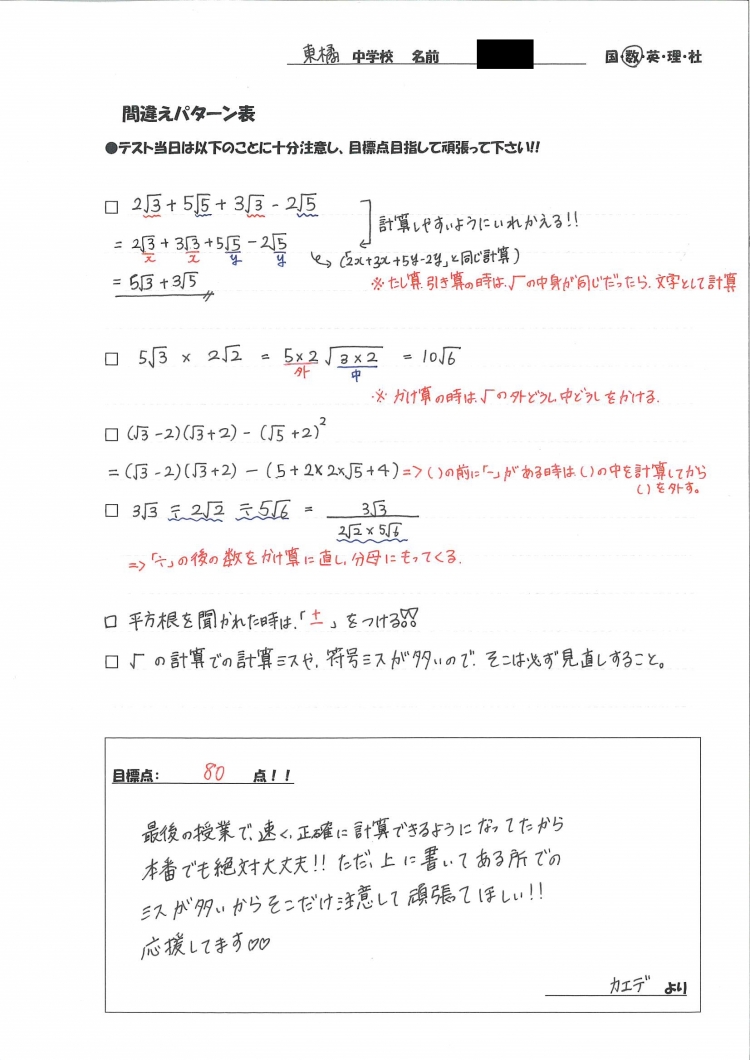 東橘 中学校 名前 国・数・英・理・社
間違えパターン表
●テスト当日は以下のことに十分注意し、目標点目指して頑張って下さい!!
□ 2√3 + 5√5 + 3√3 - 2√5
計算しやすいようにいれかえる!!
= 2√3 + 3√3 + 5√5 - 2√5
x x y y
(「2x+3x+5y-2y」と同じ計算)
= 5√3 + 3√5
※たし算、引き算の時は、√の中身が同じだったら、文字として計算
□ 5√3 × 2√2 = 5×2√3×2 = 10√6
外 中
※ かけ算の時は、√の外どうし、中どうしをかける.
□ (√3-2)(√3+2) - (√5+2)²
= (√3-2)(√3+2) - (5+2×2×√5+4) => ( )の前に「-」がある時は( )の中を計算してから
( )を外す。
□ 3√3 ÷ 2√2 ÷ 5√6 = 3√3
2√2 × 5√6
=> 「÷」の後の数をかけ算に直し、分母にもってくる.
□ 平方根を聞かれた時は、「±」をつける!!
□ √ の計算での計算ミスや、符号ミスが多いので、そこは必ず見直しすること。
目標点: 80 点!!
最後の授業で、速く、正確に計算できるようになってたから
本番でも絶対大丈夫!! ただ、上に書いてある所での
ミスが多いからそこだけ注意して頑張てほしい!!
応援してます♡♡
カエデ より